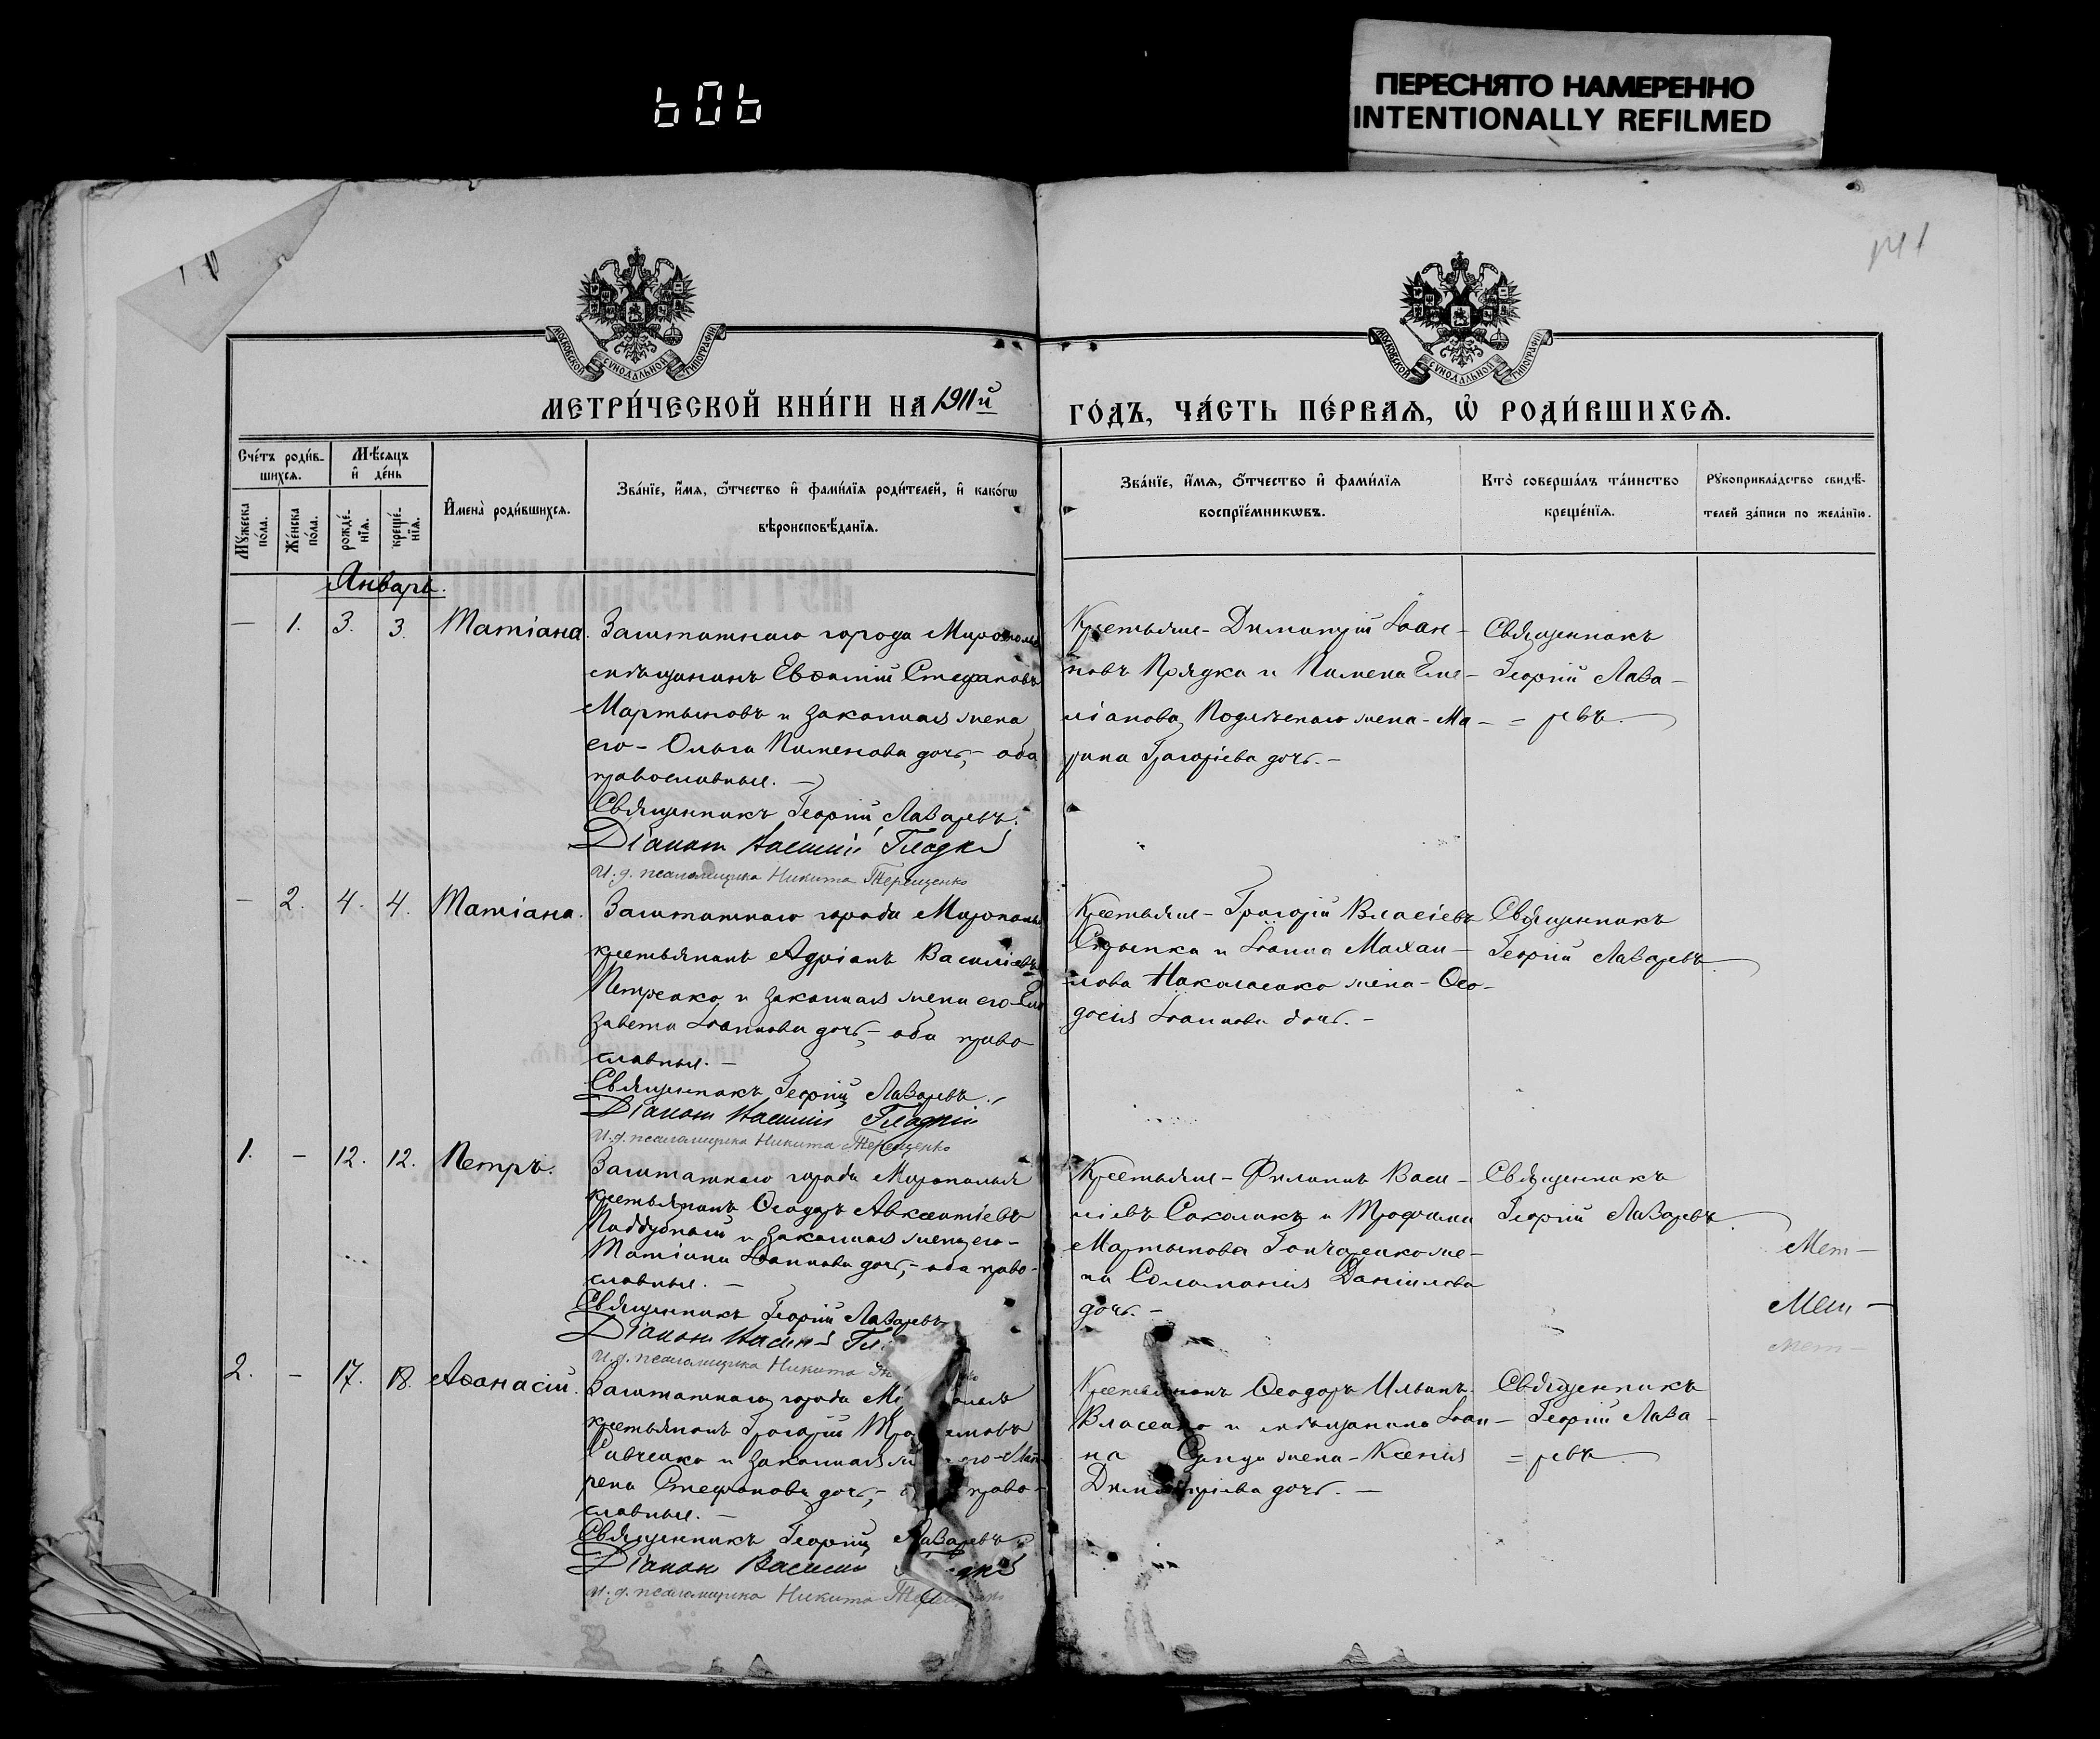 606
ПЕРЕСНЯТО НАМЕРЕННО
INTENTIONALLY REFILMED
141
МОСКОВСКОЙ СѴНОДАЛЬНОЙ ТИПОГРАФІИ
МОСКОВСКОЙ СѴНОДАЛЬНОЙ ТИПОГРАФІИ
МЕТРИ́ЧЕСКОЙ КНИ́ГИ НА 1911й
ГО́ДЪ, ЧА́СТЬ ПЕ́РВАѦ, Ѽ РОДИ́ВШИХСѦ.
Сче́тъ роди́в-
шихсѧ.
Мѣ́сѧцъ
и҆ де́нь
Мꙋ́жеска по́ла.
Же́нска по́ла.
рожде́-
нїѧ.
креще́-
нїѧ.
И҆мена̀ роди́вшихсѧ.
Зва́нїе, и҆́мѧ, ѻ҆́тчество и҆ фами́лїѧ роди́телей, и҆ како́гѡ
вѣроисповѣ́данїѧ.
Зва́нїе, и҆́мѧ, ѻ҆́тчество и҆ фами́лїѧ
воспрїе́мникѡвъ.
Кто̀ соверша́лъ та́инство
креще́нїѧ.
Рꙋкоприкла́дство свидѣ́-
телей за́писи по жела́нїю.
Январь.
— 1. 3. 3. Татіана.
Заштатнаго города Мирополья
мѣщанинъ Евѳимій Стефановъ
Мартыновъ и законная жена
его - Ольга Пименова дочь, - оба
православные. —
Священникъ Георгій Лазаревъ.
Діаконъ Василій Гладкій
И. д. псаломщика Никита Терещенко
Крестьяне - Димитрій Іоан-
новъ Прядка и Пимена Еме-
ліанова жена - Ма-
рина Григоріева дочь. —
Священникъ
Георгій Лаза-
= ревъ.
— 2. 4. 4. Татіана.
Заштатнаго города Мирополья
крестьянинъ Адріанъ Василіевъ
Петренко и законная жена его - Ели
завета Іоаннова дочь, - оба право
славные. —
Священникъ Георгій Лазаревъ.
Діаконъ Василій Гладкій
И. д. псаломщика Никита Терещенко
Крестьяне - Григорій Власіевъ
и Іоанна Михаи-
лова Николаенко жена - Ѳео-
досія Іоаннова дочь. —
Священникъ
Георгій Лазаревъ
1. — 12. 12. Петръ.
Заштатнаго города Мирополья
крестьянинъ Ѳеодоръ Авксентіевъ
Поддубный и законная жена его -
Татіана Іоаннова дочь, - оба право-
славные. —
Священникъ Георгій Лазаревъ
Діаконъ Василій Гл
И. д. псаломщика Никита
Крестьяне - Филиппъ Васи-
ліевъ Соколикъ и Трофима
Мартынова Гончаренко же-
на Соломонія Даніилова
дочь. —
Священникъ
Георгій Лазаревъ
Мет —
Мет —
Мет —
2. — 17. 18. Аѳанасій.
Заштатнаго города Ми ополья
крестьянинъ Григорій Тро имовъ
Савченко и законная ж его - Мат
рена Стефанова дочь, - о право-
славные. —
Священникъ Георгій Лазаревъ
Діаконъ Василій дкій
И. д. псаломщика Никита Терещенко
Крестьянинъ Ѳеодоръ Ильинъ
Власенко и мѣщанина Іоан-
на жена - Ксенія
Димитріева дочь. —
Священникъ
Георгій Лаза-
= ревъ